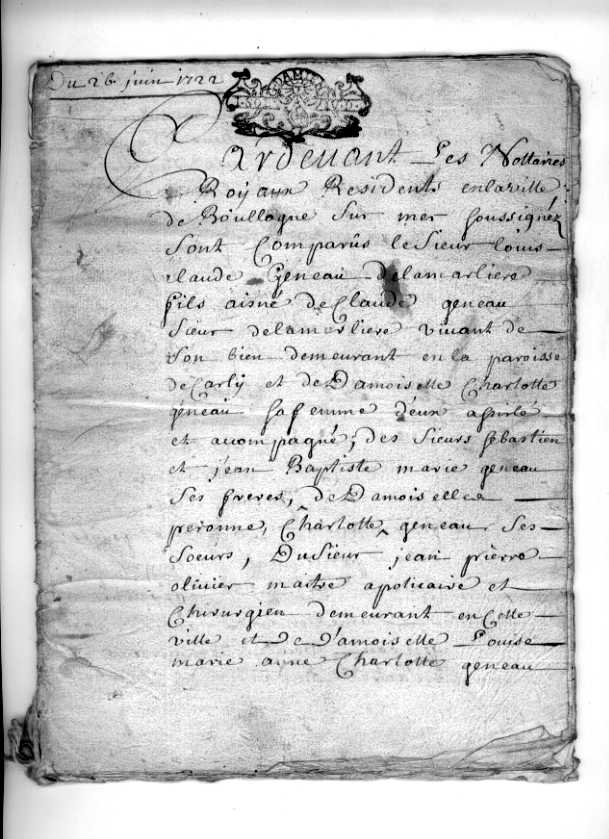 Du 26 juin 1722
Pardevant Les Nottaires
Royaux Residents en la ville
de Boullogne sur mer soussignéz
sont Comparûs le sieur louis
claude Geneau delamarliere
fils aisné de Claude geneau
sieur delamarliere vivant de
son bien demeurant en la paroisse
de Carly et de Damoiselle Charlotte
geneau sa femme d'eux assisté
et accompagné, des sieurs sebastien
et jean Baptiste marie geneau
ses freres, de Damoiselles
peronne, Charlotte geneau ses
soeurs, Du sieur jean pierre
olivier maitre apoticaire et
Chirurgien demeurant en Cette
ville et de Damoiselle Louise
marie anne Charlotte geneau